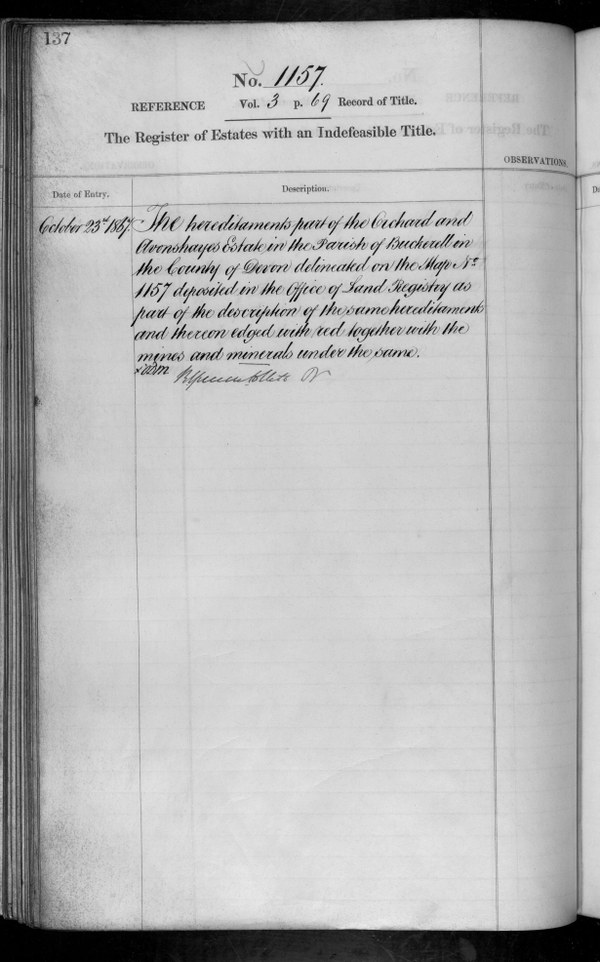 137
No. 1157.
REFERENCE Vol. 3 p. 69 Record of Title.
The Register of Estates with an Indefeasible Title.
OBSERVATIONS.
Date of Entry.
Description.
October 23rd 1867.
The hereditaments part of the Orchard and
Avonshayes Estate in the Parish of Buckerell in
the County of Devon delineated on the Map No.
1157 deposited in the Office of Land Registry as
part of the description of the same hereditaments
and thereon edged with red together with the
mines and minerals under the same.